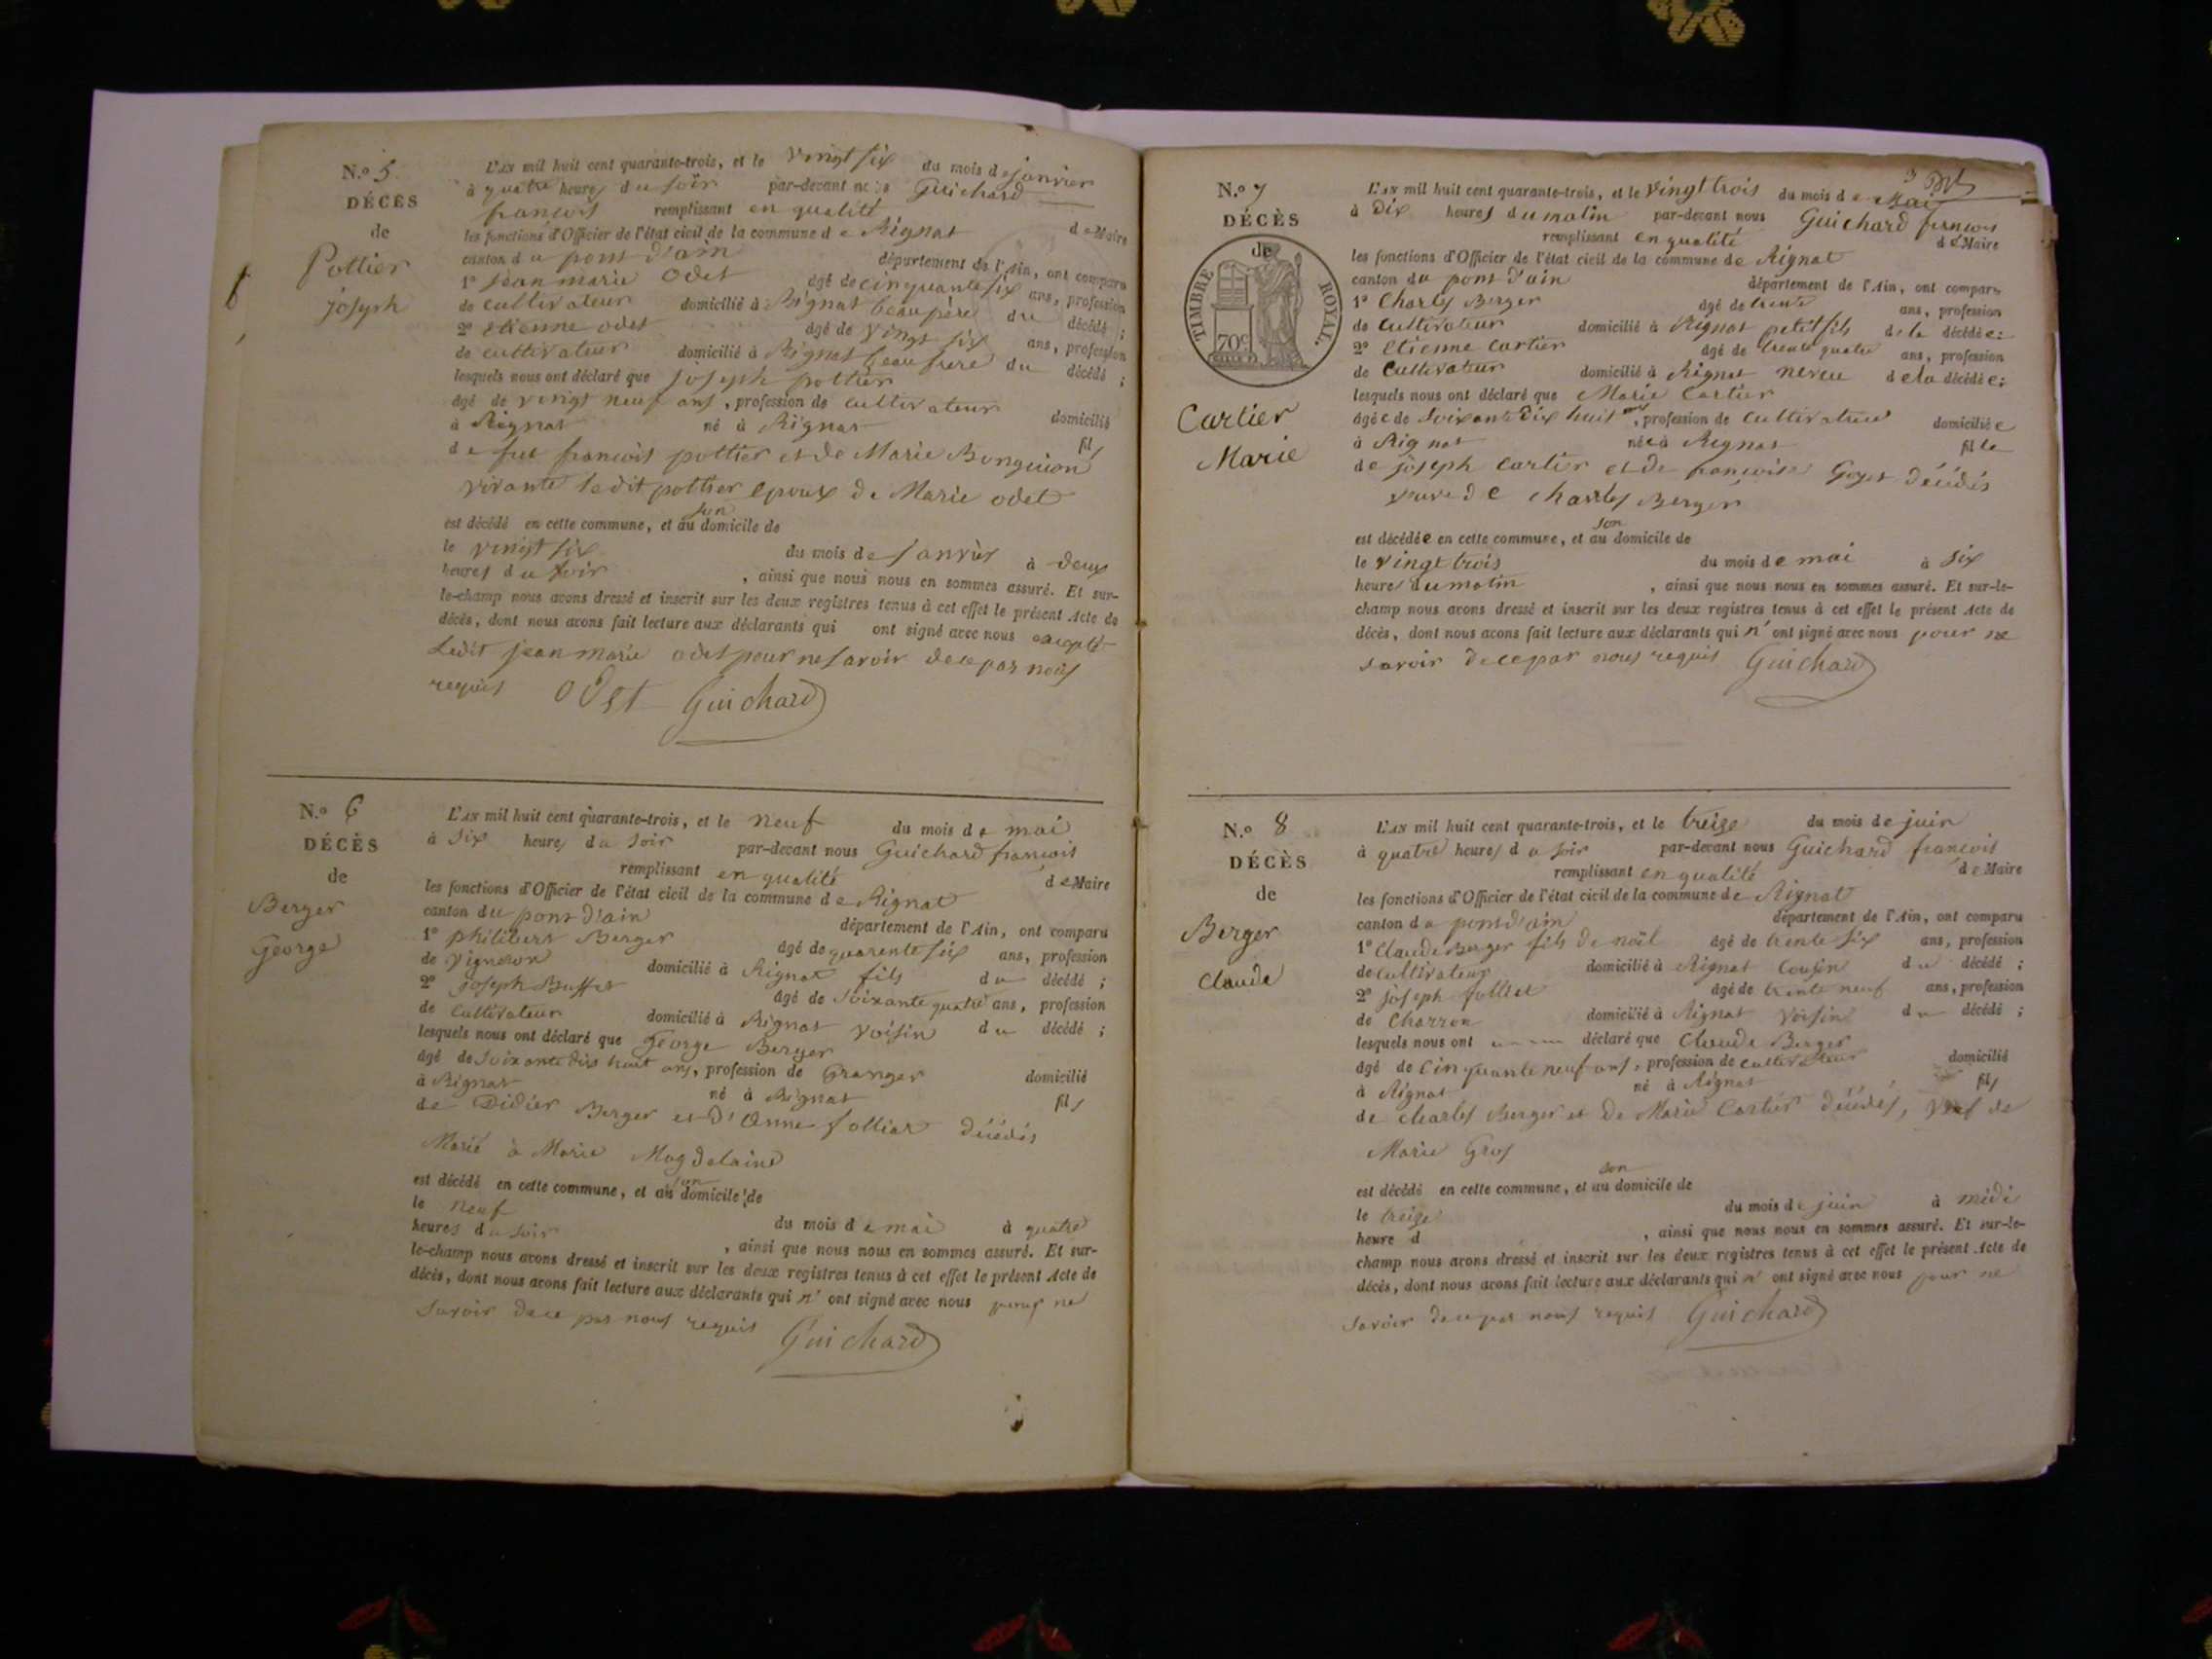 N.o 5.
DÉCÈS
de
Pottier
joseph
L'AN mil huit cent quarante-trois, et le vingt six du mois de janvier
à quatre heures du soir par-devant nous Guichard
francois remplissant en qualité de Maire
les fonctions d'Officier de l'état civil de la commune de Rignat
canton du pont d'ain département de l'Ain, ont comparu
1° jean marie Odet âgé de cinquante six ans, profession
de cultivateur domicilié à Rignat beau père du décédé ;
2° Etienne odet âgé de vingt six ans, profession
de cultivateur domicilié à Rignat beau frere du décédé ;
lesquels nous ont déclaré que joseph pottier
âgé de vingt neuf ans, profession de cultivateur domicilié
à Rignat né à Rignat fils
de feu francois pottier et de Marie
vivante ledit pottier epoux de Marie odet
est décédé en cette commune, et au son domicile de
le vingt six du mois de janvier à deux
heures du soir, ainsi que nous nous en sommes assuré. Et sur-
le-champ nous avons dressé et inscrit sur les deux registres tenus à cet effet le présent Acte de
décès, dont nous avons fait lecture aux déclarants qui ont signé avec nous excepté
Ledit jean marie odet pour ne savoir de ce par nous
requis Odet Guichard
N.o 6
DÉCÈS
de
Berger
George
L'AN mil huit cent quarante-trois, et le neuf du mois de mai
à six heures du soir par-devant nous Guichard francois
remplissant en qualité de Maire
les fonctions d'Officier de l'état civil de la commune de Rignat
canton du pont d'ain département de l'Ain, ont comparu
1° philibert Berger âgé de quarente six ans, profession
de vigneron domicilié à Rignat fils du décédé ;
2° joseph Buffet âgé de soixante quatre ans, profession
de cultivateur domicilié à Rignat voisin du décédé ;
lesquels nous ont déclaré que George Berger
âgé de soixante dix huit ans, profession de Granger domicilié
à Rignat né à Rignat fils
de Didier Berger et d'Anne folliat décédés
Marié à Marie Magdelaine
est décédé en cette commune, et au son domicile de
le neuf du mois de mai à quatre
heures du soir, ainsi que nous nous en sommes assuré. Et sur-
le-champ nous avons dressé et inscrit sur les deux registres tenus à cet effet le présent Acte de
décès, dont nous avons fait lecture aux déclarants qui n' ont signé avec nous pour ne
savoir de ce par nous requis Guichard
3
N.o 7
DÉCÈS
de
TIMBRE ROYAL.
70c
Cartier
Marie
L'AN mil huit cent quarante-trois, et le vingt trois du mois de Mai
à Dix heures du matin par-devant nous Guichard francois
remplissant en qualité de Maire
les fonctions d'Officier de l'état civil de la commune de Rignat
canton du pont d'ain département de l'Ain, ont comparu
1° Charles Berger âgé de trente ans, profession
de Cultivateur domicilié à Rignat petit fils de la décédée ;
2° Etienne Cartier âgé de trente quatre ans, profession
de Cultivateur domicilié à Rignat neveu de la décédée ;
lesquels nous ont déclaré que Marie Cartier
âgée de soixante dix huit ans, profession de cultivatrice domiciliée
à Rignat née à Rignat fille
de joseph Cartier et de francoise Goyet décédés
veuve de charles Berger
est décédée en cette commune, et au son domicile de
le vingt trois du mois de mai à six
heures du matin, ainsi que nous nous en sommes assuré. Et sur-le-
champ nous avons dressé et inscrit sur les deux registres tenus à cet effet le présent Acte de
décès, dont nous avons fait lecture aux déclarants qui n' ont signé avec nous pour ne
savoir de ce par nous requis Guichard
N.o 8
DÉCÈS
de
Berger
Claude
L'AN mil huit cent quarante-trois, et le treize du mois de juin
à quatre heures du soir par-devant nous Guichard francois
remplissant en qualité de Maire
les fonctions d'Officier de l'état civil de la commune de Rignat
canton du pont d'ain département de l'Ain, ont comparu
1° Claude Berger fils de noël âgé de trente six ans, profession
de cultivateur domicilié à Rignat Cousin du décédé ;
2° joseph folliet âgé de trente neuf ans, profession
de Charron domicilié à Rignat voisin du décédé ;
lesquels nous ont déclaré que Claude Berger
âgé de Cinquante neuf ans, profession de cultivateur domicilié
à Rignat né à Rignat fils
de charles Berger et de Marie Cartier décédés, veuf de
Marie Gros
est décédé en cette commune, et au son domicile de
le treize du mois de juin à midi
heure d , ainsi que nous nous en sommes assuré. Et sur-le-
champ nous avons dressé et inscrit sur les deux registres tenus à cet effet le présent Acte de
décès, dont nous avons fait lecture aux déclarants qui n' ont signé avec nous pour ne
savoir de ce par nous requis Guichard